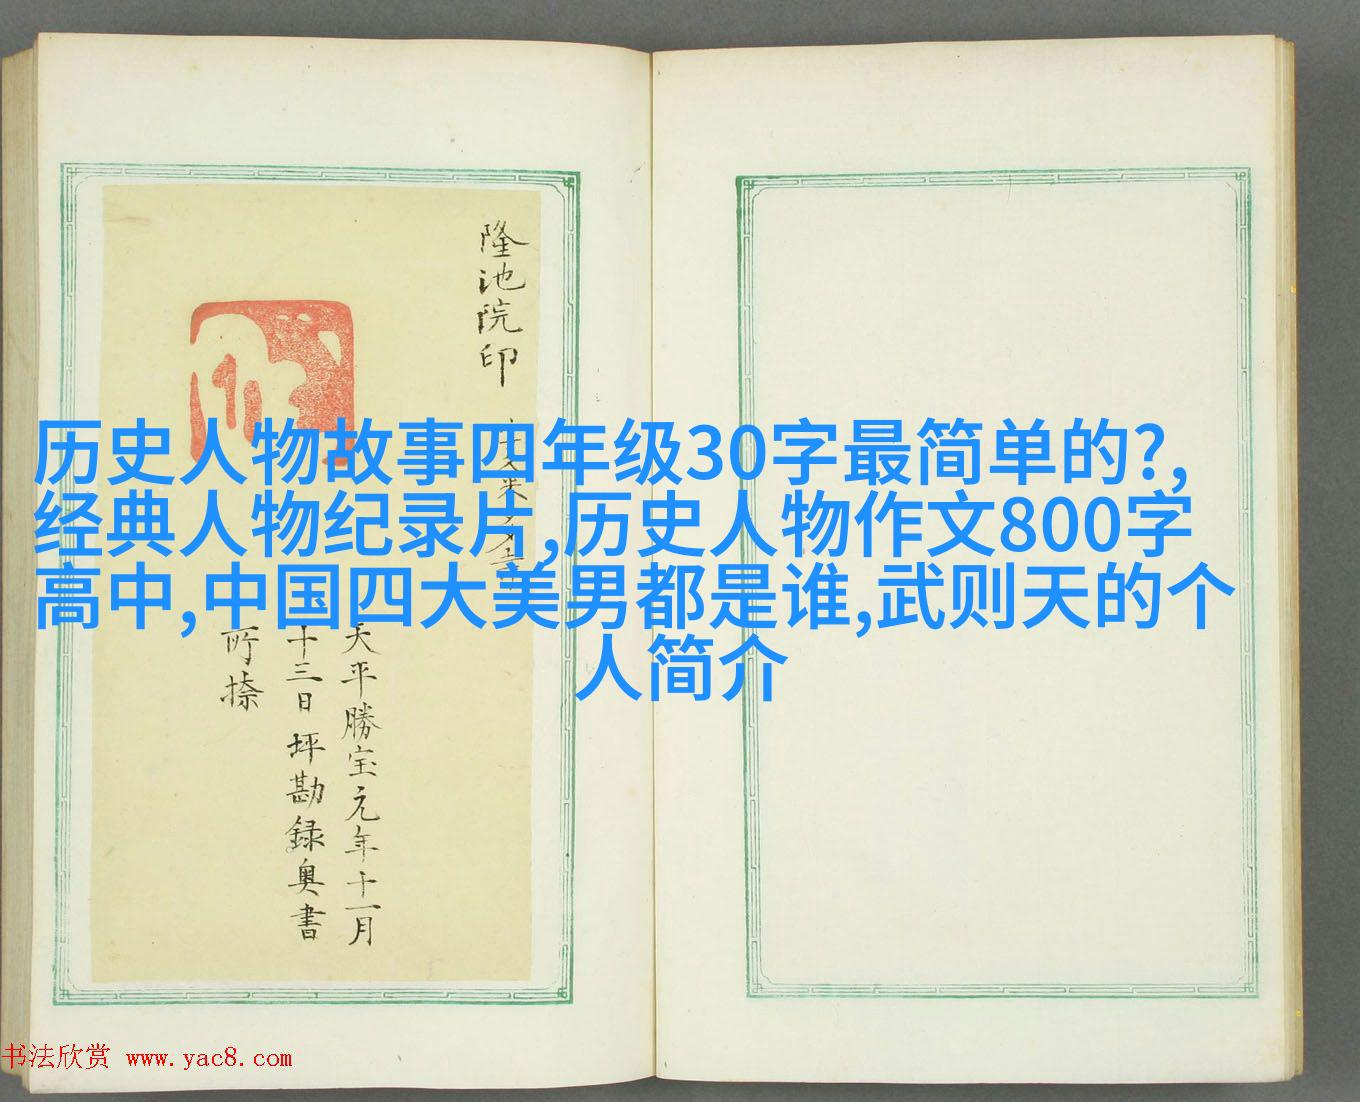 历史人物故事四年级30字最简单的?,
经典人物纪录片,历史人物作文800字
高中,中国四大美男都是谁,武则天的个
人简介
隆池院印
天平勝宝元年十一月
十三日 坪勘録奥書
所捺
书法欣赏 www.yac8.com